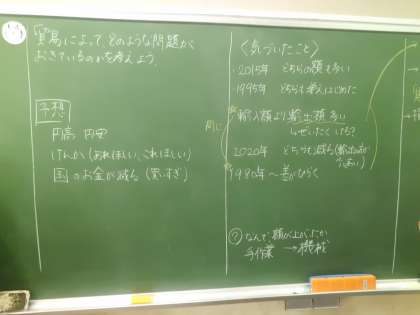 貿易によって、どのような問題が
おきているのかを考えよう。
予想
円高 円安
けんか(あれほしい、これほしい)
国のお金が減る(買いすぎ)
〈気づいたこと〉
・2015年 どちらの額も多い
・1995年 どちらも増えはじめた
輸入額より輸出額多い
ぜいたくしてる?
同じ
2020年 どちらも減る(輸出の方が
1980年~差がひらく
? なんで額が上がったか
手作業 →機械